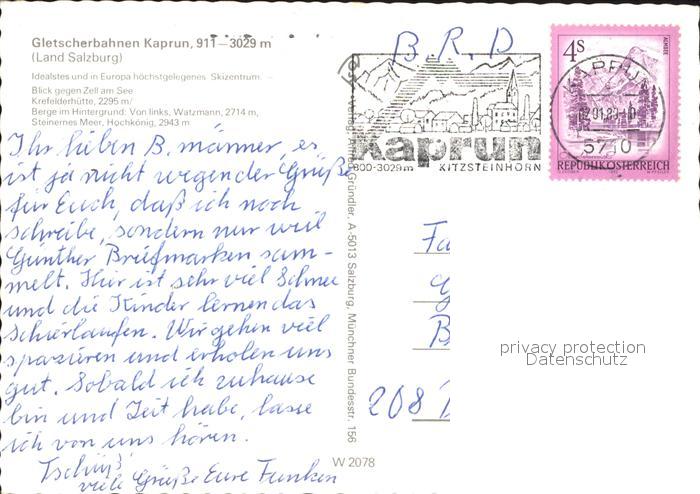 Gletscherbahnen Kaprun, 911–3029 m
(Land Salzburg)
Idealstes und in Europa höchstgelegenes Skizentrum.
Blick gegen Zell am See
Krefelderhütte, 2295 m/
Berge im Hintergrund: Von links, Watzmann, 2714 m,
Steinernes Meer, Hochkönig, 2943 m
Ihr lieben B. männer, es
ist ja nicht wegen der Grüße
für Euch, daß ich noch
schreibe, sondern nur weil
Günther Briefmarken sam-
melt. Hier ist sehr viel Schnee
und die Kinder lernen das
Schierlaufen. Wir gehen viel
spazieren und erholen uns
gut. Sobald ich zuhause
bin und Zeit habe, lasse
ich von uns hören.
Tschüß
viele Grüße Eure Funken
B.R.D
Kaprun
800-3029m KITZSTEINHORN
4s
ALMSEE
KAPRUN
5710
REPUBLIK ÖSTERREICH
Gründler, A-5013 Salzburg, Münchner Bundesstr. 156
W 2078
Fa
G
B
208
privacy protection
Datenschutz